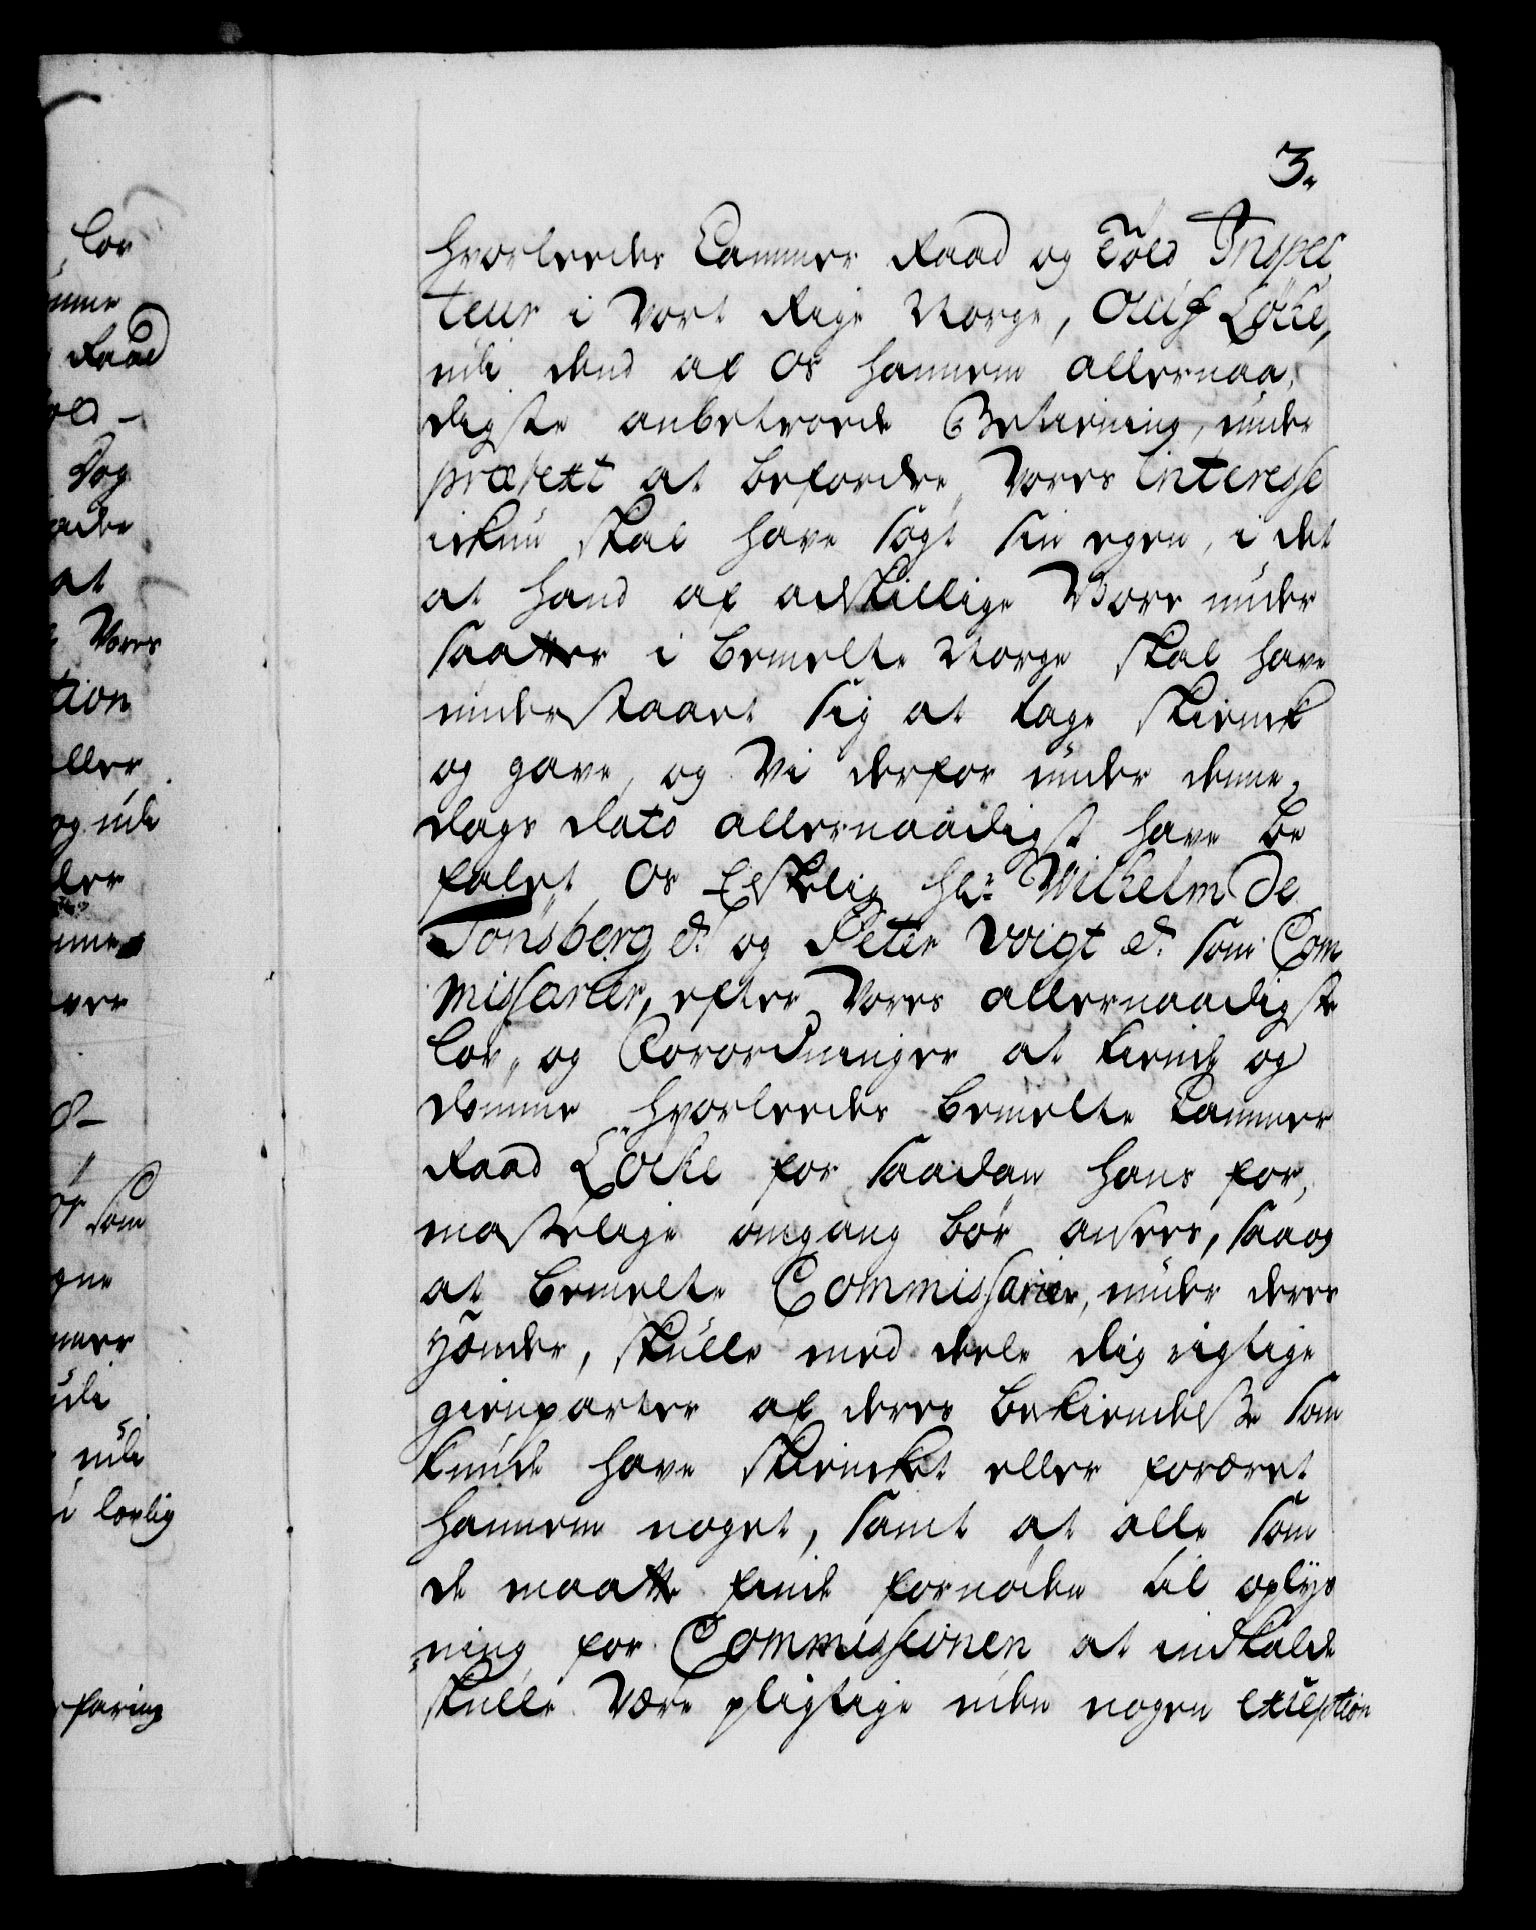 3.
hvorleedes Cammer Raad og Told Inspec
teur i Vort Rige Norge, Oluf Löcke,
udi dend af Os hannem allernaa,
digste anbetroede Betiening, under
prætext at befordre Vores Interesse
ickun skal have søgt sin egen, i det
at hand af adskillige Vore under
saatter i bemelte Norge skal have
understaaet sig at tage skienck
og gave, og Vi derfor under denne
dags dato allernaadigst have be
falet Os Elskelig Hr: Wilhelm de
Tönsberg &. og Peter Voigt &. som Com
missarier, efter Vores allernaadigste
Lov, og Forordninger at kiende og
dømme hvorleedes bemelte Cammer
Raad Löcke for saadan hans for,
mastelige omgang bör ansees, saa og
at bemelte Commissarier, under deres
Hænder, skulle med deele dig rigtige
gienparter af deres bekiendelsse som
kunde have skiencket eller foræret
hannem noget, samt at alle som
de maatte finde fornöden til oplys
ning for Commissionen at indkalde
skulle være pligtige uden nogen exception
Lov
Raad
Dog
at
Vores
tion
eller
og udi
som
udi
i lovlig